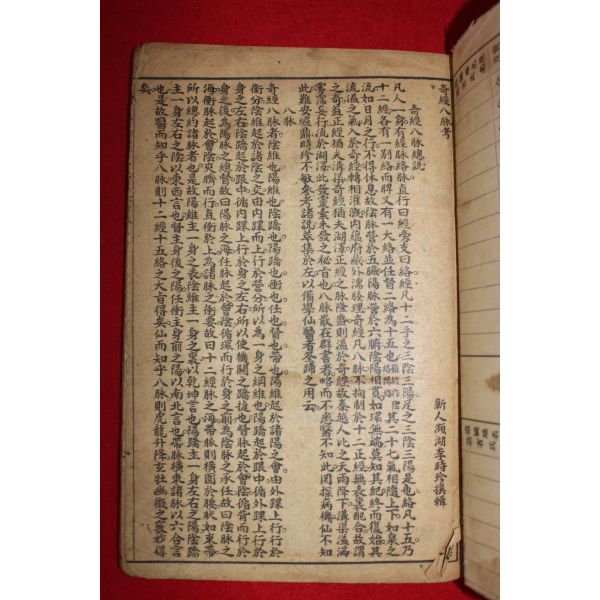 奇經八脈考
新人瀕湖李時珍撰輯
奇經八脈總說
凡人一身有經脈絡脈直行曰經旁支曰絡經凡十二手之三陰三陽足之三陰三陽是也絡凡十五乃
十二經各有一別絡而脾又有一大絡並任督二絡為十五也其二十七氣相隨上下如泉之
流如日月之行不得休息故陰脈營於五臟陽脈營於六腑陰陽相貫如環無端莫知其紀終而復始其
流溢之氣入於奇經轉相灌溉內溫臟腑外濡腠理奇經凡八脈不拘制於十二正經無表裏配合故謂
之奇蓋正經猶夫溝渠奇經猶夫湖澤正經之脈隆盛則溢於奇經故秦越人比之天雨降下溝渠溢滿
霶霈妄行流於湖澤此發靈素未發之秘旨也八脈散在群書者略而不悉醫不知此罔探病機仙不知
此難安爐鼎時珍不敏參考諸說萃集於左以備學仙醫者筌蹄之用云
八脈
奇經八脈者陰維也陽維也陰蹻也陽蹻也衝也任也督也帶也陽維起於諸陽之會由外踝上行於
衛分陰維起於諸陰之交由內踝而上行於營分所以為一身之綱維也陽蹻起於跟中循外踝上行於
身之左右陰蹻起於跟中循內踝上行於身之左右所以使機關之蹻捷也督脈起於會陰循背而行於
身之後為陽脈之總督故曰陽脈之海任脈起於會陰循腹而行於身之前為陰脈之承任故曰陰脈之
海衝脈起於會陰夾臍而行直衝於上為諸脈之衝要故曰十二經脈之海帶脈則橫圍於腰狀如束帶
所以總約諸脈者也是故陽維主一身之表陰維主一身之裏以乾坤言也陽蹻主一身左右之陽陰蹻
主一身左右之陰以東西言也督主身後之陽任衝主身前之陰以南北言也帶脈橫束諸脈以六合言
也是故醫而知乎八脈則十二經十五絡之大旨得矣仙而知乎八脈則虎龍升降玄牝幽微之竅妙得
矣